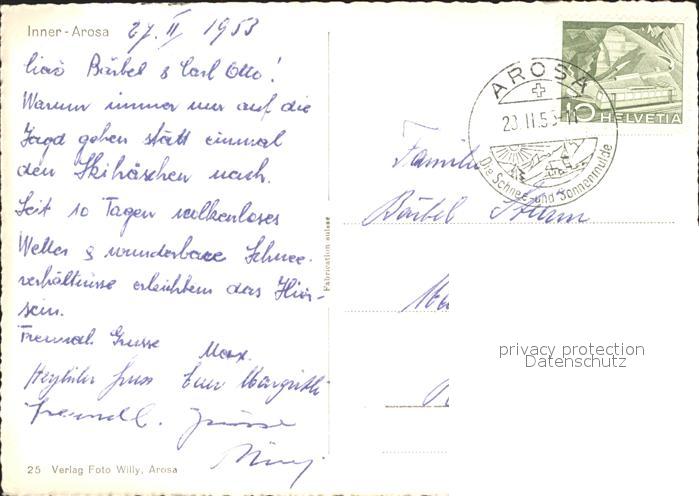 Inner-Arosa 27. II 1953
Ciao Bärbel & Carl Otto!
Warum immer nur auf die
Jagd gehen statt einmal
den Skihäschen nach.
Seit 10 Tagen wolkenloses
Wetter & wunderbare Schnee-
verhältnisse erleichtern das Hier-
sein.
Freundl. Grüsse
Max.
Herzliche Grüss Euer Margritli
freundl. Grüsse
25 Verlag Foto Willy, Arosa
Fabrication suisse
AROSA
28.II.53-11
Die Schnee- und Sonnenmulde
10 HELVETIA
Familie
Bärbel Sturm
privacy protection
Datenschutz